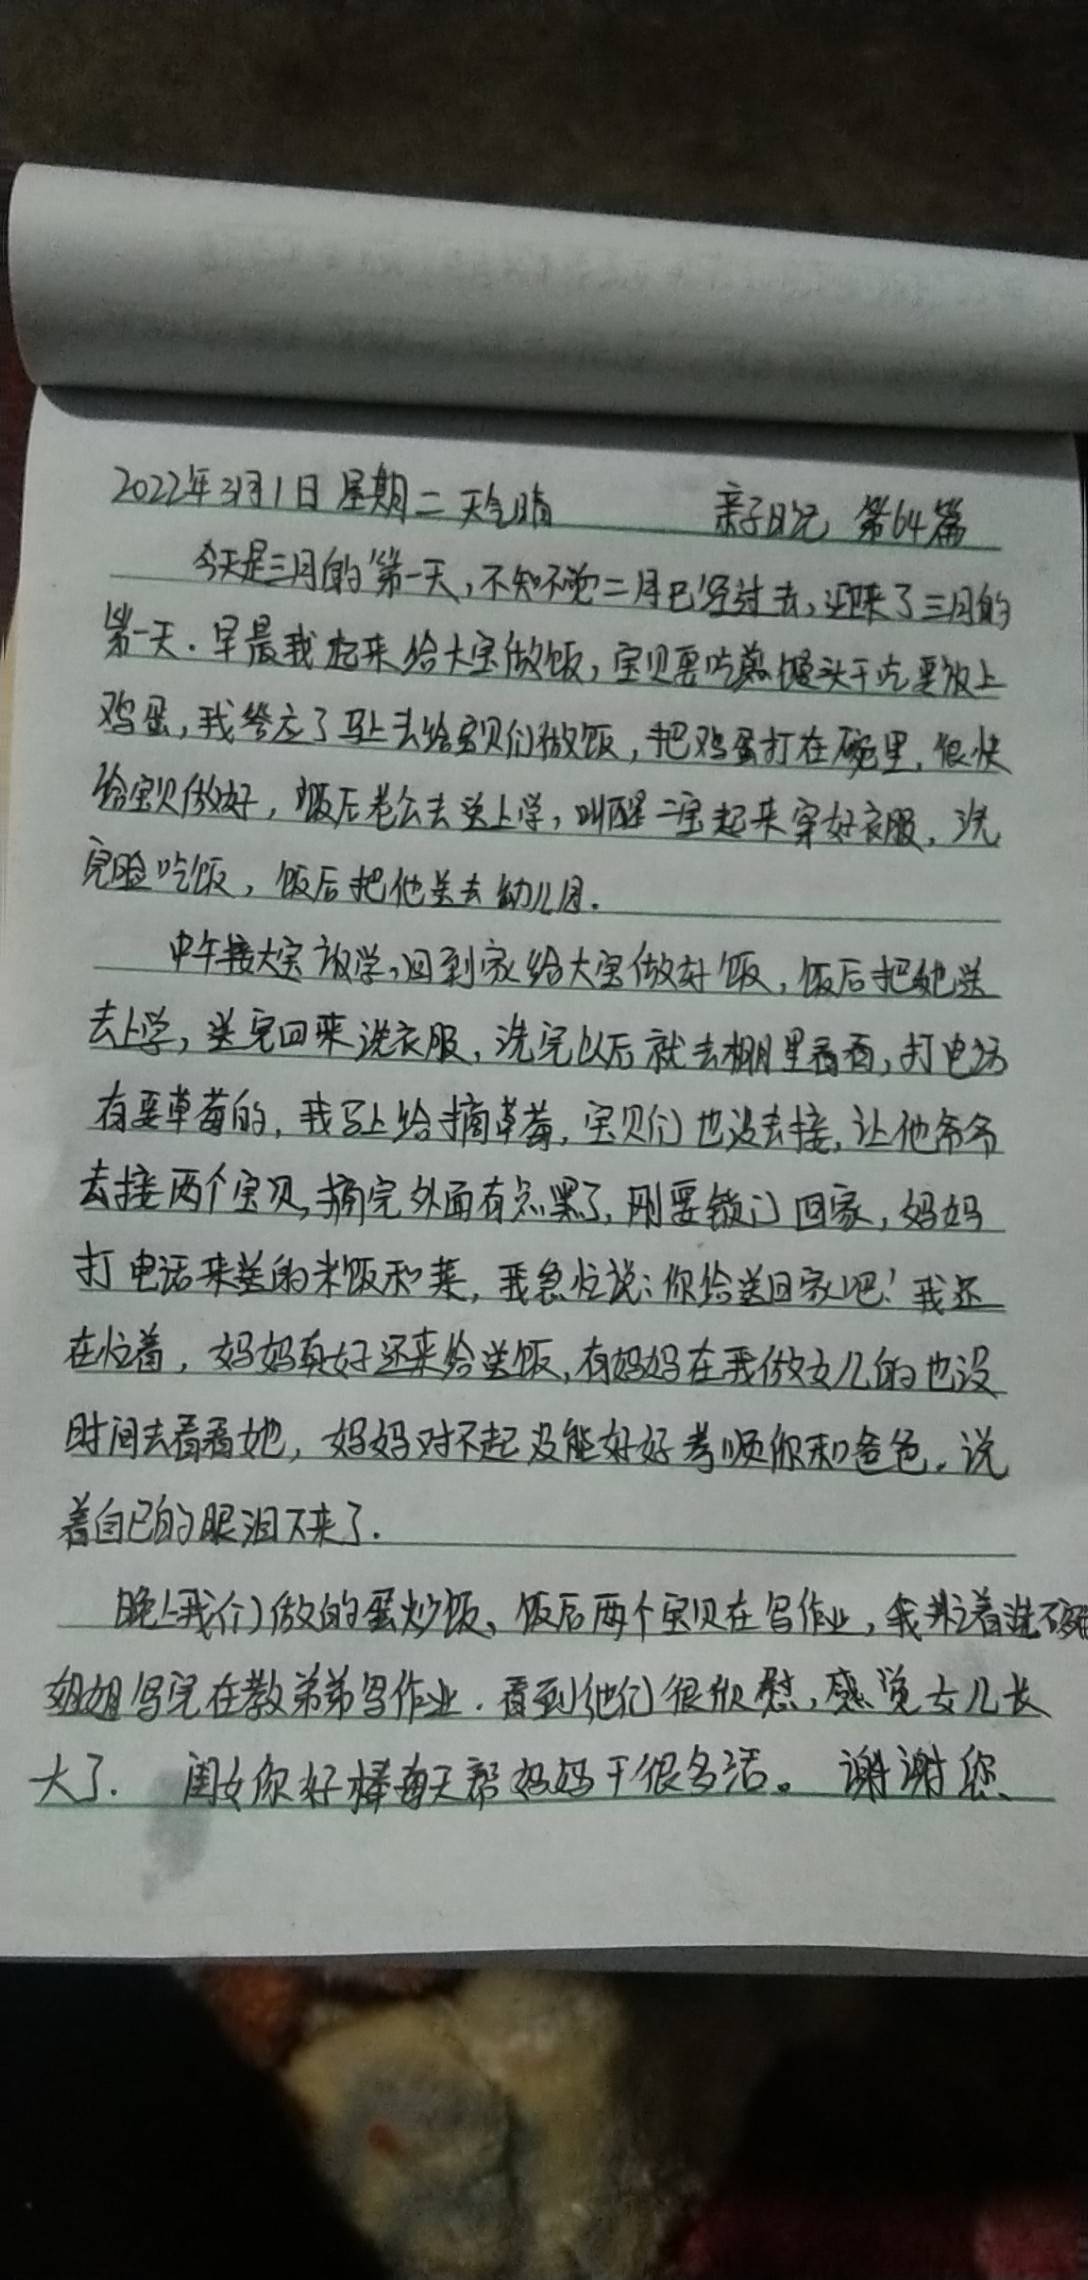 2022年3月1日 星期二 天气晴 亲子日记 第64篇
今天是三月的第一天,不知不觉二月已经过去,迎来了三月的
第一天.早晨我起来给大宝做饭,宝贝要吃煎馒头干吃要放上
鸡蛋,我答应了马上去给宝贝们做饭,把鸡蛋打在碗里,很快
给宝贝做好,饭后老公去送上学,叫醒二宝起来穿好衣服,洗
完脸吃饭,饭后把他送去幼儿园.
中午接大宝放学,回到家给大宝做好饭,饭后把她送
去上学,送完回来洗衣服,洗完以后就去棚里看看,打电话
有要草莓的,我马上给摘草莓,宝贝们也没去接,让他爷爷
去接两个宝贝,摘完外面有点黑了,刚要锁门回家,妈妈
打电话来送的米饭和菜,我急忙说:你给送回家吧!我还
在忙着,妈妈真好还来给送饭,有妈妈在我做女儿的也没
时间去看看她,妈妈对不起没能好好孝顺你和爸爸。说
着自己的眼泪下来了.
晚上我们做的蛋炒饭、饭后两个宝贝在写作业,我忙着洗碗
姐姐写完在教弟弟写作业.看到他们很欣慰,感觉女儿长
大了. 闺女你好棒每天帮妈妈干很多活。 谢谢您、